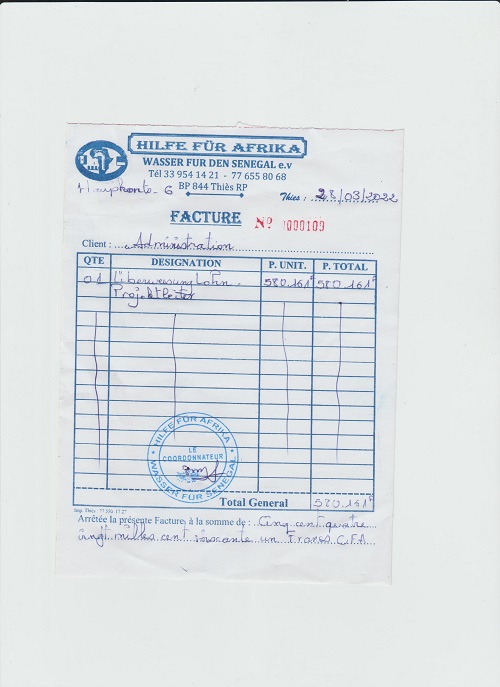 HILFE FÜR AFRIKA
WASSER FUR DEN SENEGAL e.v
Tél 33 954 14 21 - 77 655 80 68
BP 844 Thiès RP
6
Thies : 28/03/2022
FACTURE Nº 0000109
Client : Administration
QTE DESIGNATION P. UNIT. P. TOTAL
01 Überweisung Lohn 580.161 F 580.161 F
Projektleiter
HILFE FÜR AFRIKA
LE
COORDONNATEUR
WASSER FÜR SENEGAL
Total General 580.161 F
Imp. Thiès
Arrêtée la présente Facture, à la somme de : Cinq cent quatre
vingt milles cent soixante un Francs CFA